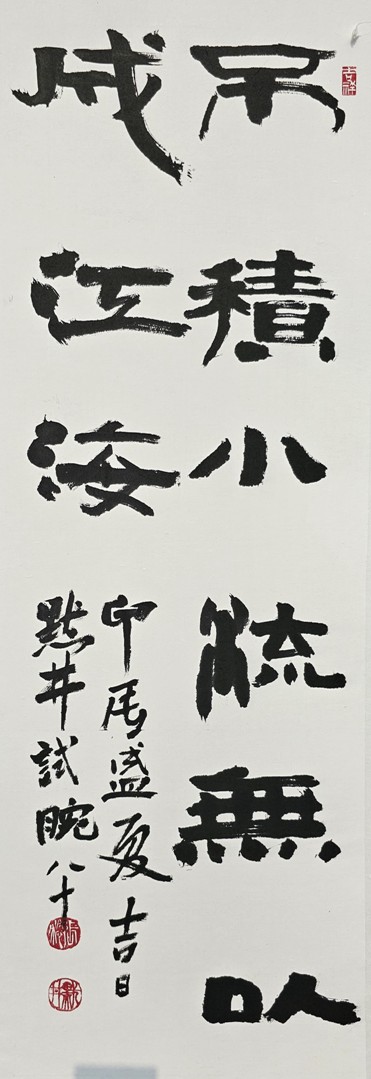 不積小流無以
成江海
甲辰盛夏吉日
默井試腕八十
吉祥
默井